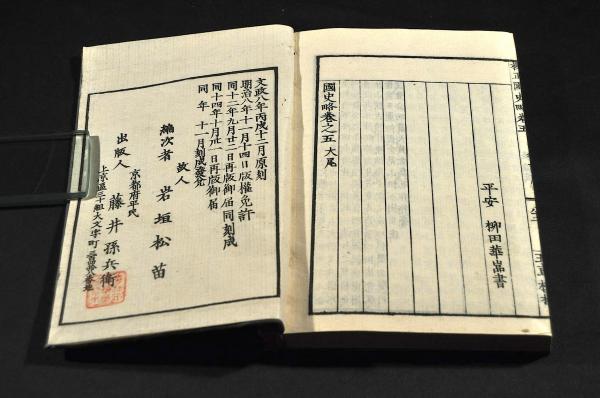 平安　柳田華嵩書
國史略卷之五大尾
文政八年丙戌十二月原刻
明治八年十一月十四日版權免許
同十二年九月廿二日再版御届同刻成
同十四年十月廿一日再版御届
同年十一月刻成發兌
故人
編次者　岩垣松苗
京都府平民
出版人　藤井孫兵衛
上京區三十組大文字町